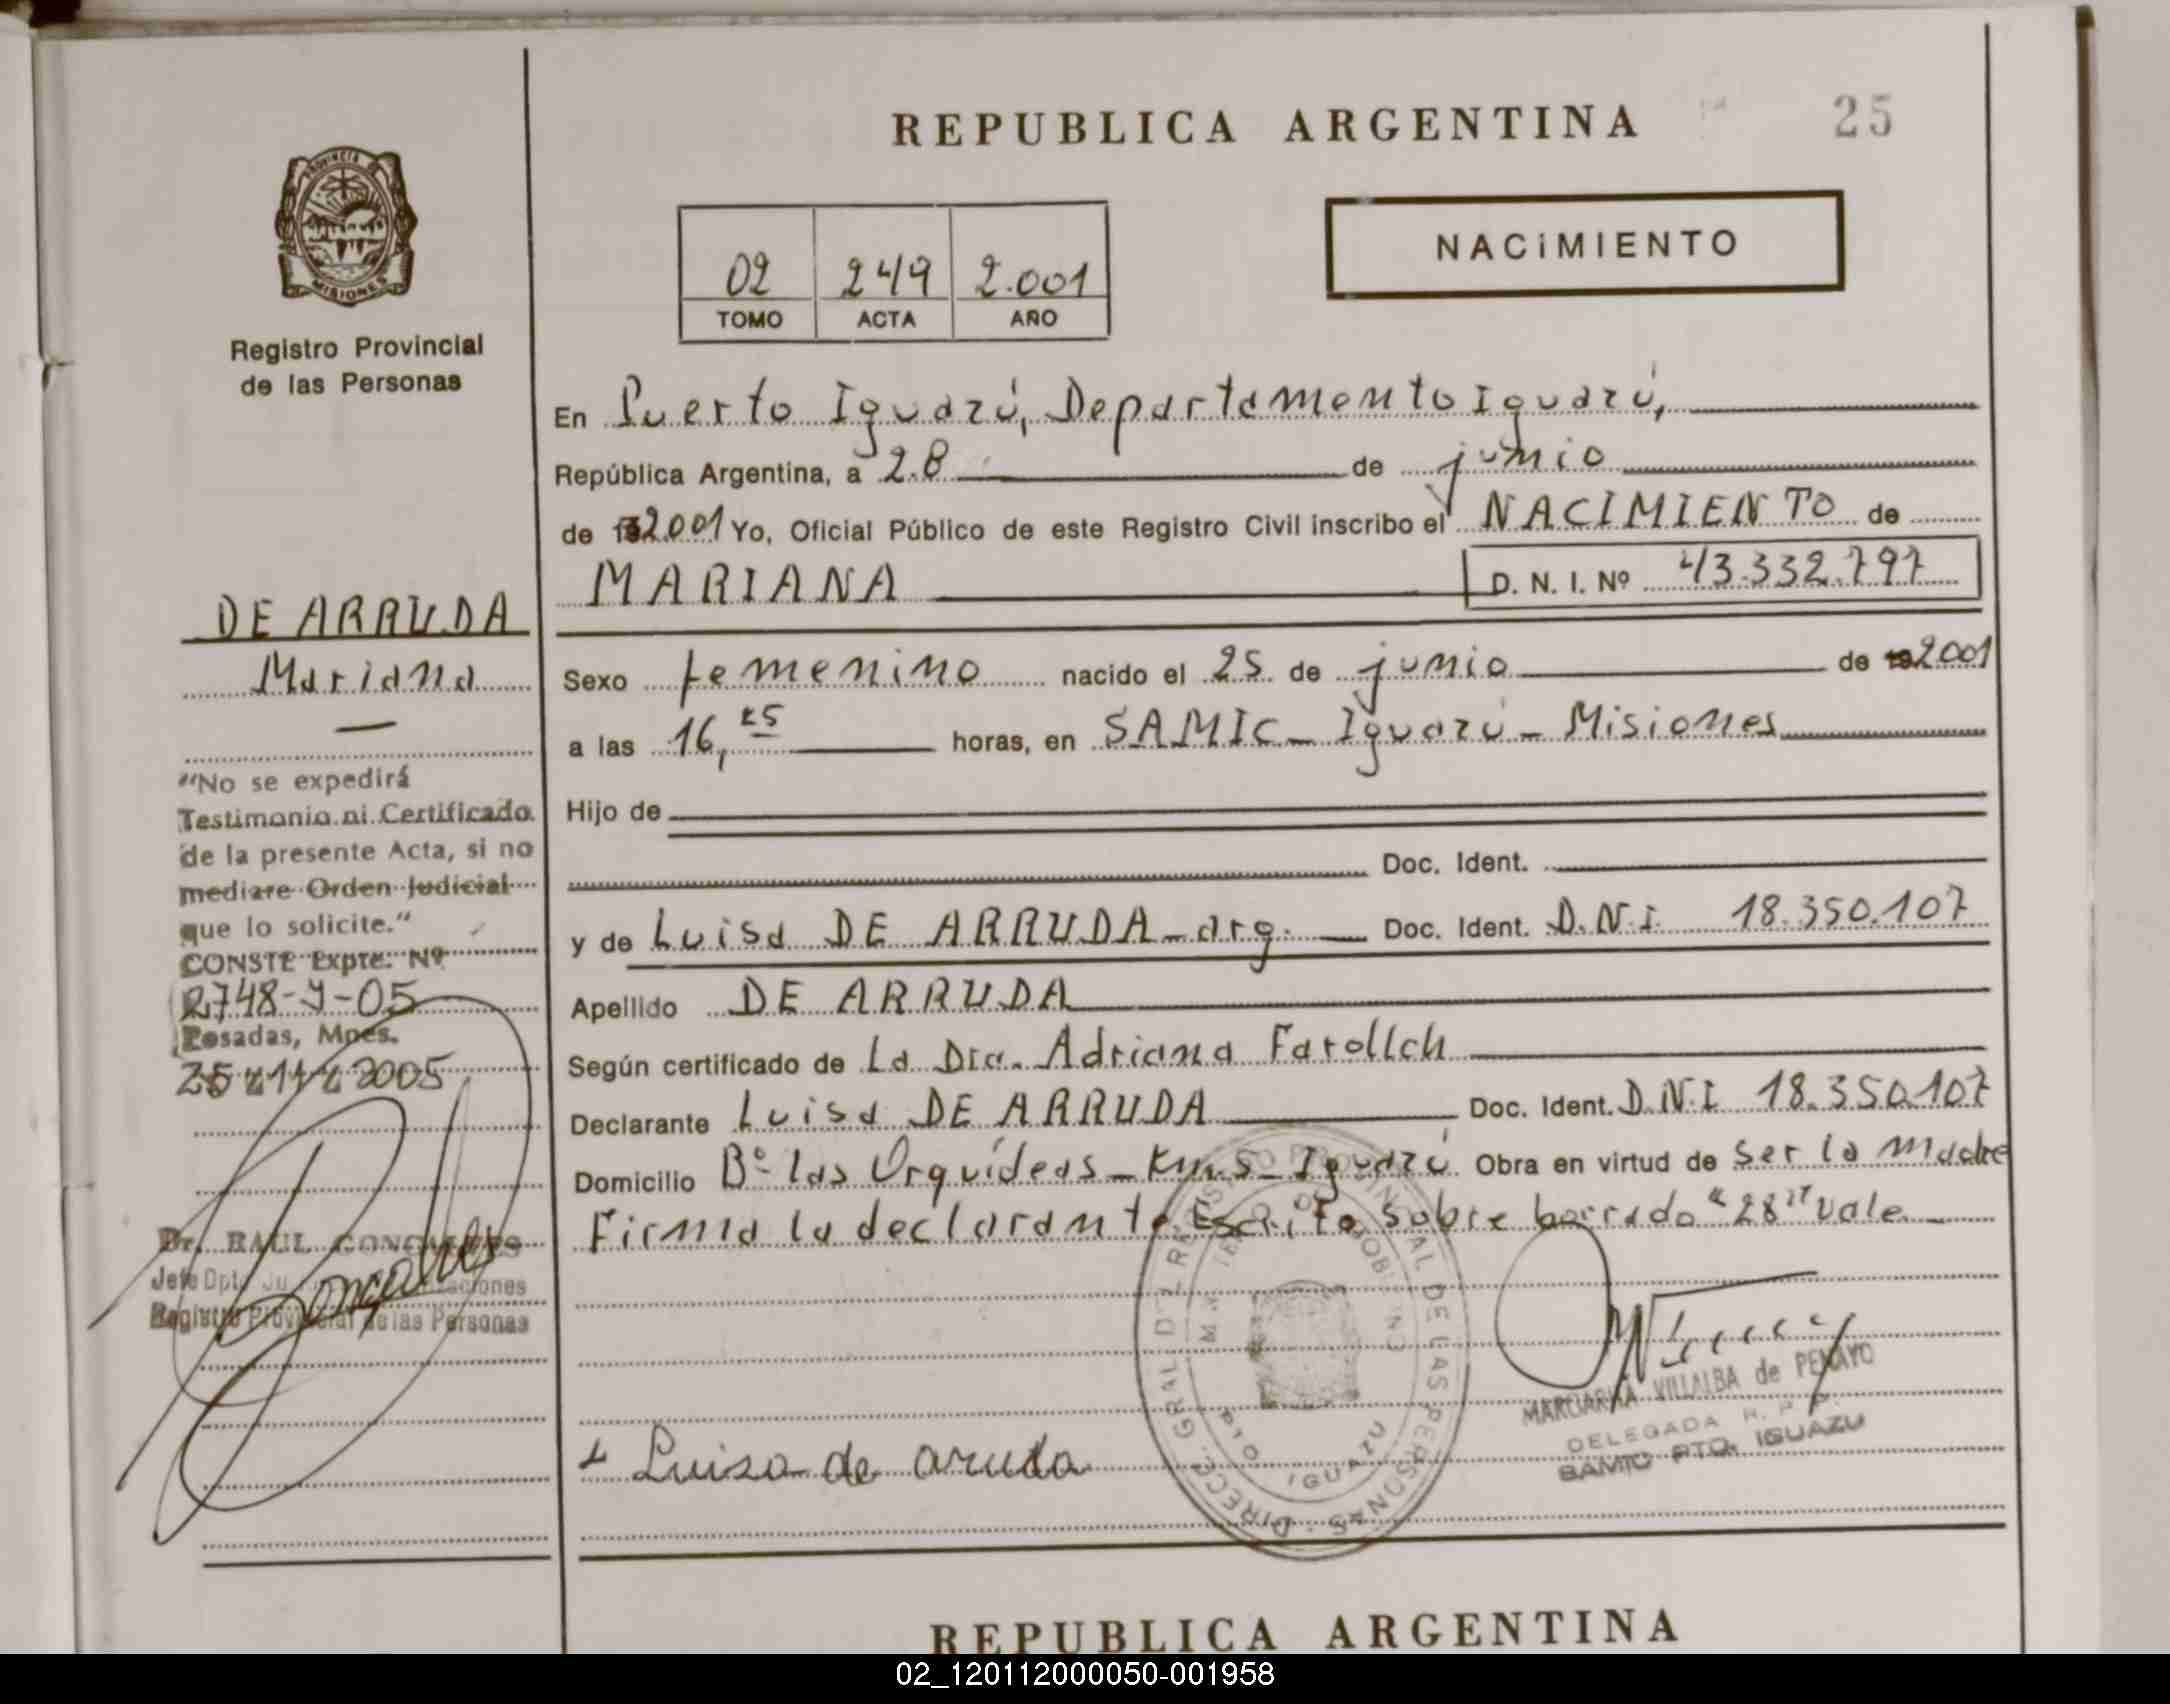 REPUBLICA ARGENTINA
25
PROVINCIA DE
MISIONES
Registro Provincial
de las Personas
02 249 2.001
TOMO ACTA AÑO
NACIMIENTO
En Puerto Iguazú, Departamento Iguazú,
República Argentina, a 28 de junio
de 2001 Yo, Oficial Público de este Registro Civil inscribo el NACIMIENTO de
MARIANA D. N. I. Nº 43.332.797
DE ARRUDA
Mariana
Sexo femenino nacido el 25 de junio de 2001
a las 16, horas, en SAMIC - Iguazú - Misiones
Hijo de
Doc. Ident.
y de Luisa DE ARRUDA - arg. Doc. Ident. D.N.I. 18.350.107
Apellido DE ARRUDA
Según certificado de La Dra. Adriana
Declarante Luisa DE ARRUDA Doc. Ident. D.N.I 18.350.107
Domicilio Bº las Orquídeas - Km 5 - Iguazú Obra en virtud de ser la madre
Firma la declarante Escrito sobre borrado "28" vale
"No se expedirá
Testimonio ni Certificado
de la presente Acta, si no
mediare Orden Judicial
que lo solicite."
CONSTE Expte. Nº
2748-Y-05
Posadas, Mnes.
25 11 2005
Dr. RAUL GONCALVES
Jefe Dpto
Registro Provincial de las Personas
Luisa de aruda
DIRECC. GRAL. DEL REGISTRO PROVINCIAL DE LAS PERSONAS
IGUAZU
MARGARITA VILLALBA de PENAYO
DELEGADA R. P. P.
SAMIC PTO. IGUAZU
REPUBLICA ARGENTINA
02_120112000050-001958